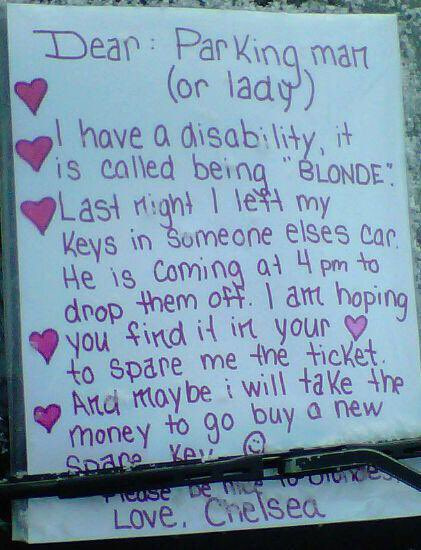 Dear: Parking man
(or lady)
I have a disability, it
is called being "BLONDE".
Last night I left my
keys in someone elses car.
He is coming at 4 pm to
drop them off. I am hoping
you find it in your ♥
to spare me the ticket.
And maybe i will take the
money to go buy a new
spare key ☺
Please be nice to blondes.
Love, Chelsea